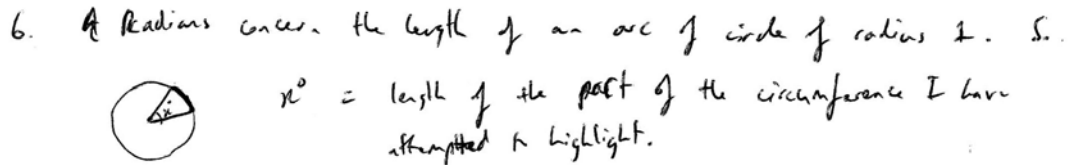 6. Radians concern the length of an arc of circle of radius 1. So
x
x° = length of the part of the circumference I have
attempted to highlight.